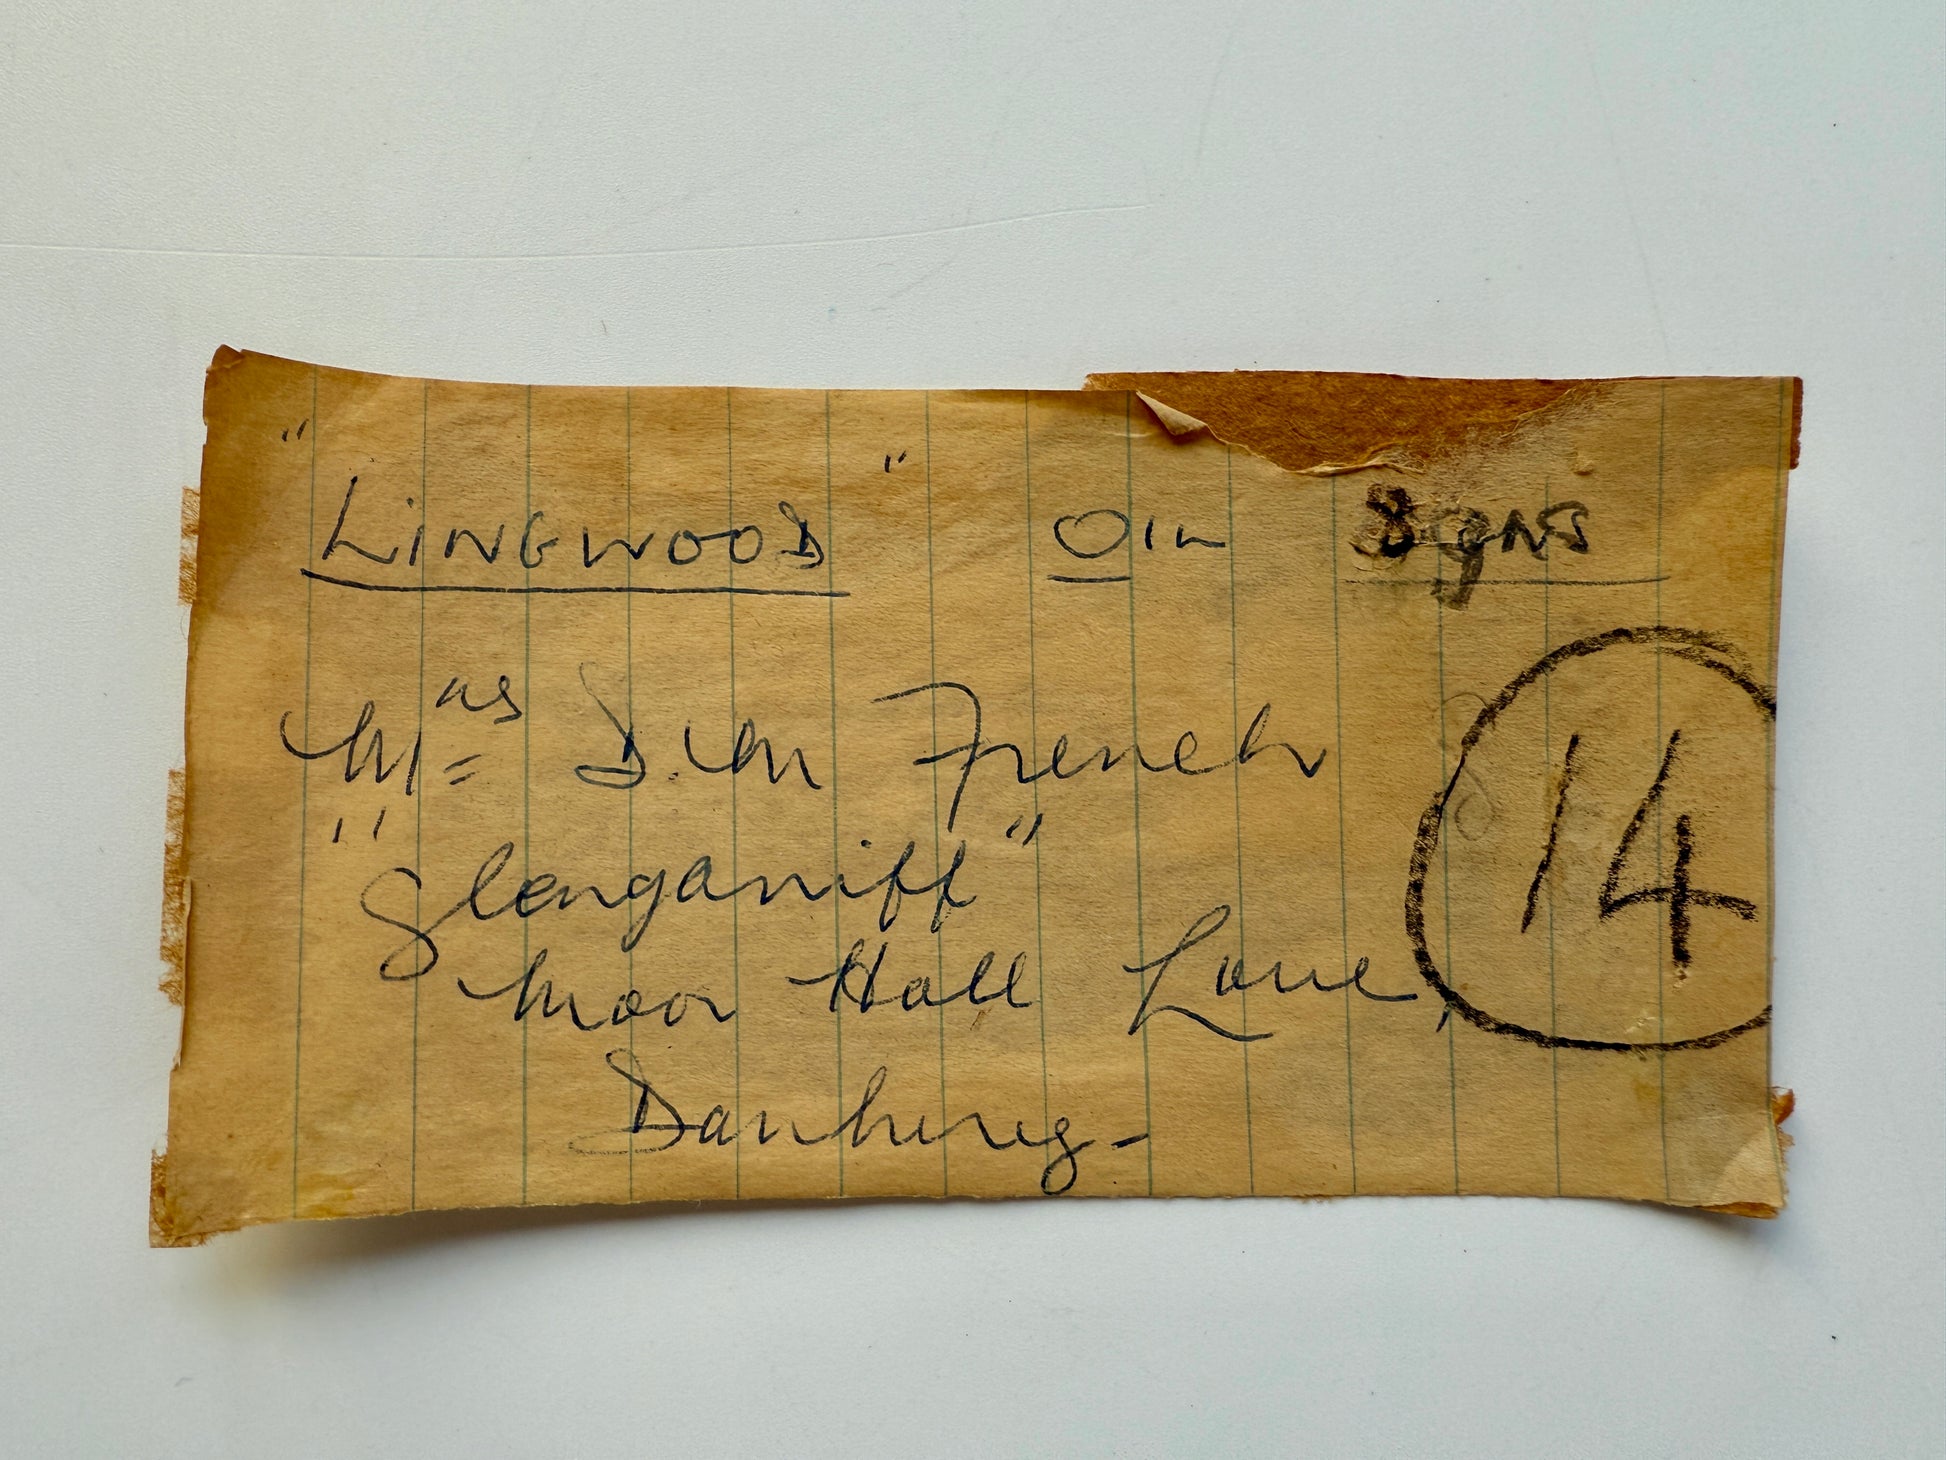 "LINGWOOD" OIL SIGNS
Mrs D. Wn French
"Glengariff"
Moor Hall Lane,
Danbury-
14